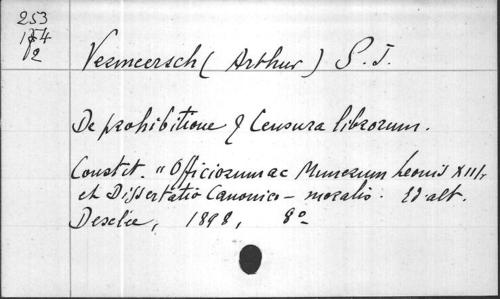 253
154
2
Vermeersch (Arthur) S. J.
De prohibitione & Censura librorum.
Constit. "Officiorum ac Munerum Leonis XIII,
et Dissertatio Canonico-moralis. Ed alt.
Desclée, 1898, 8º